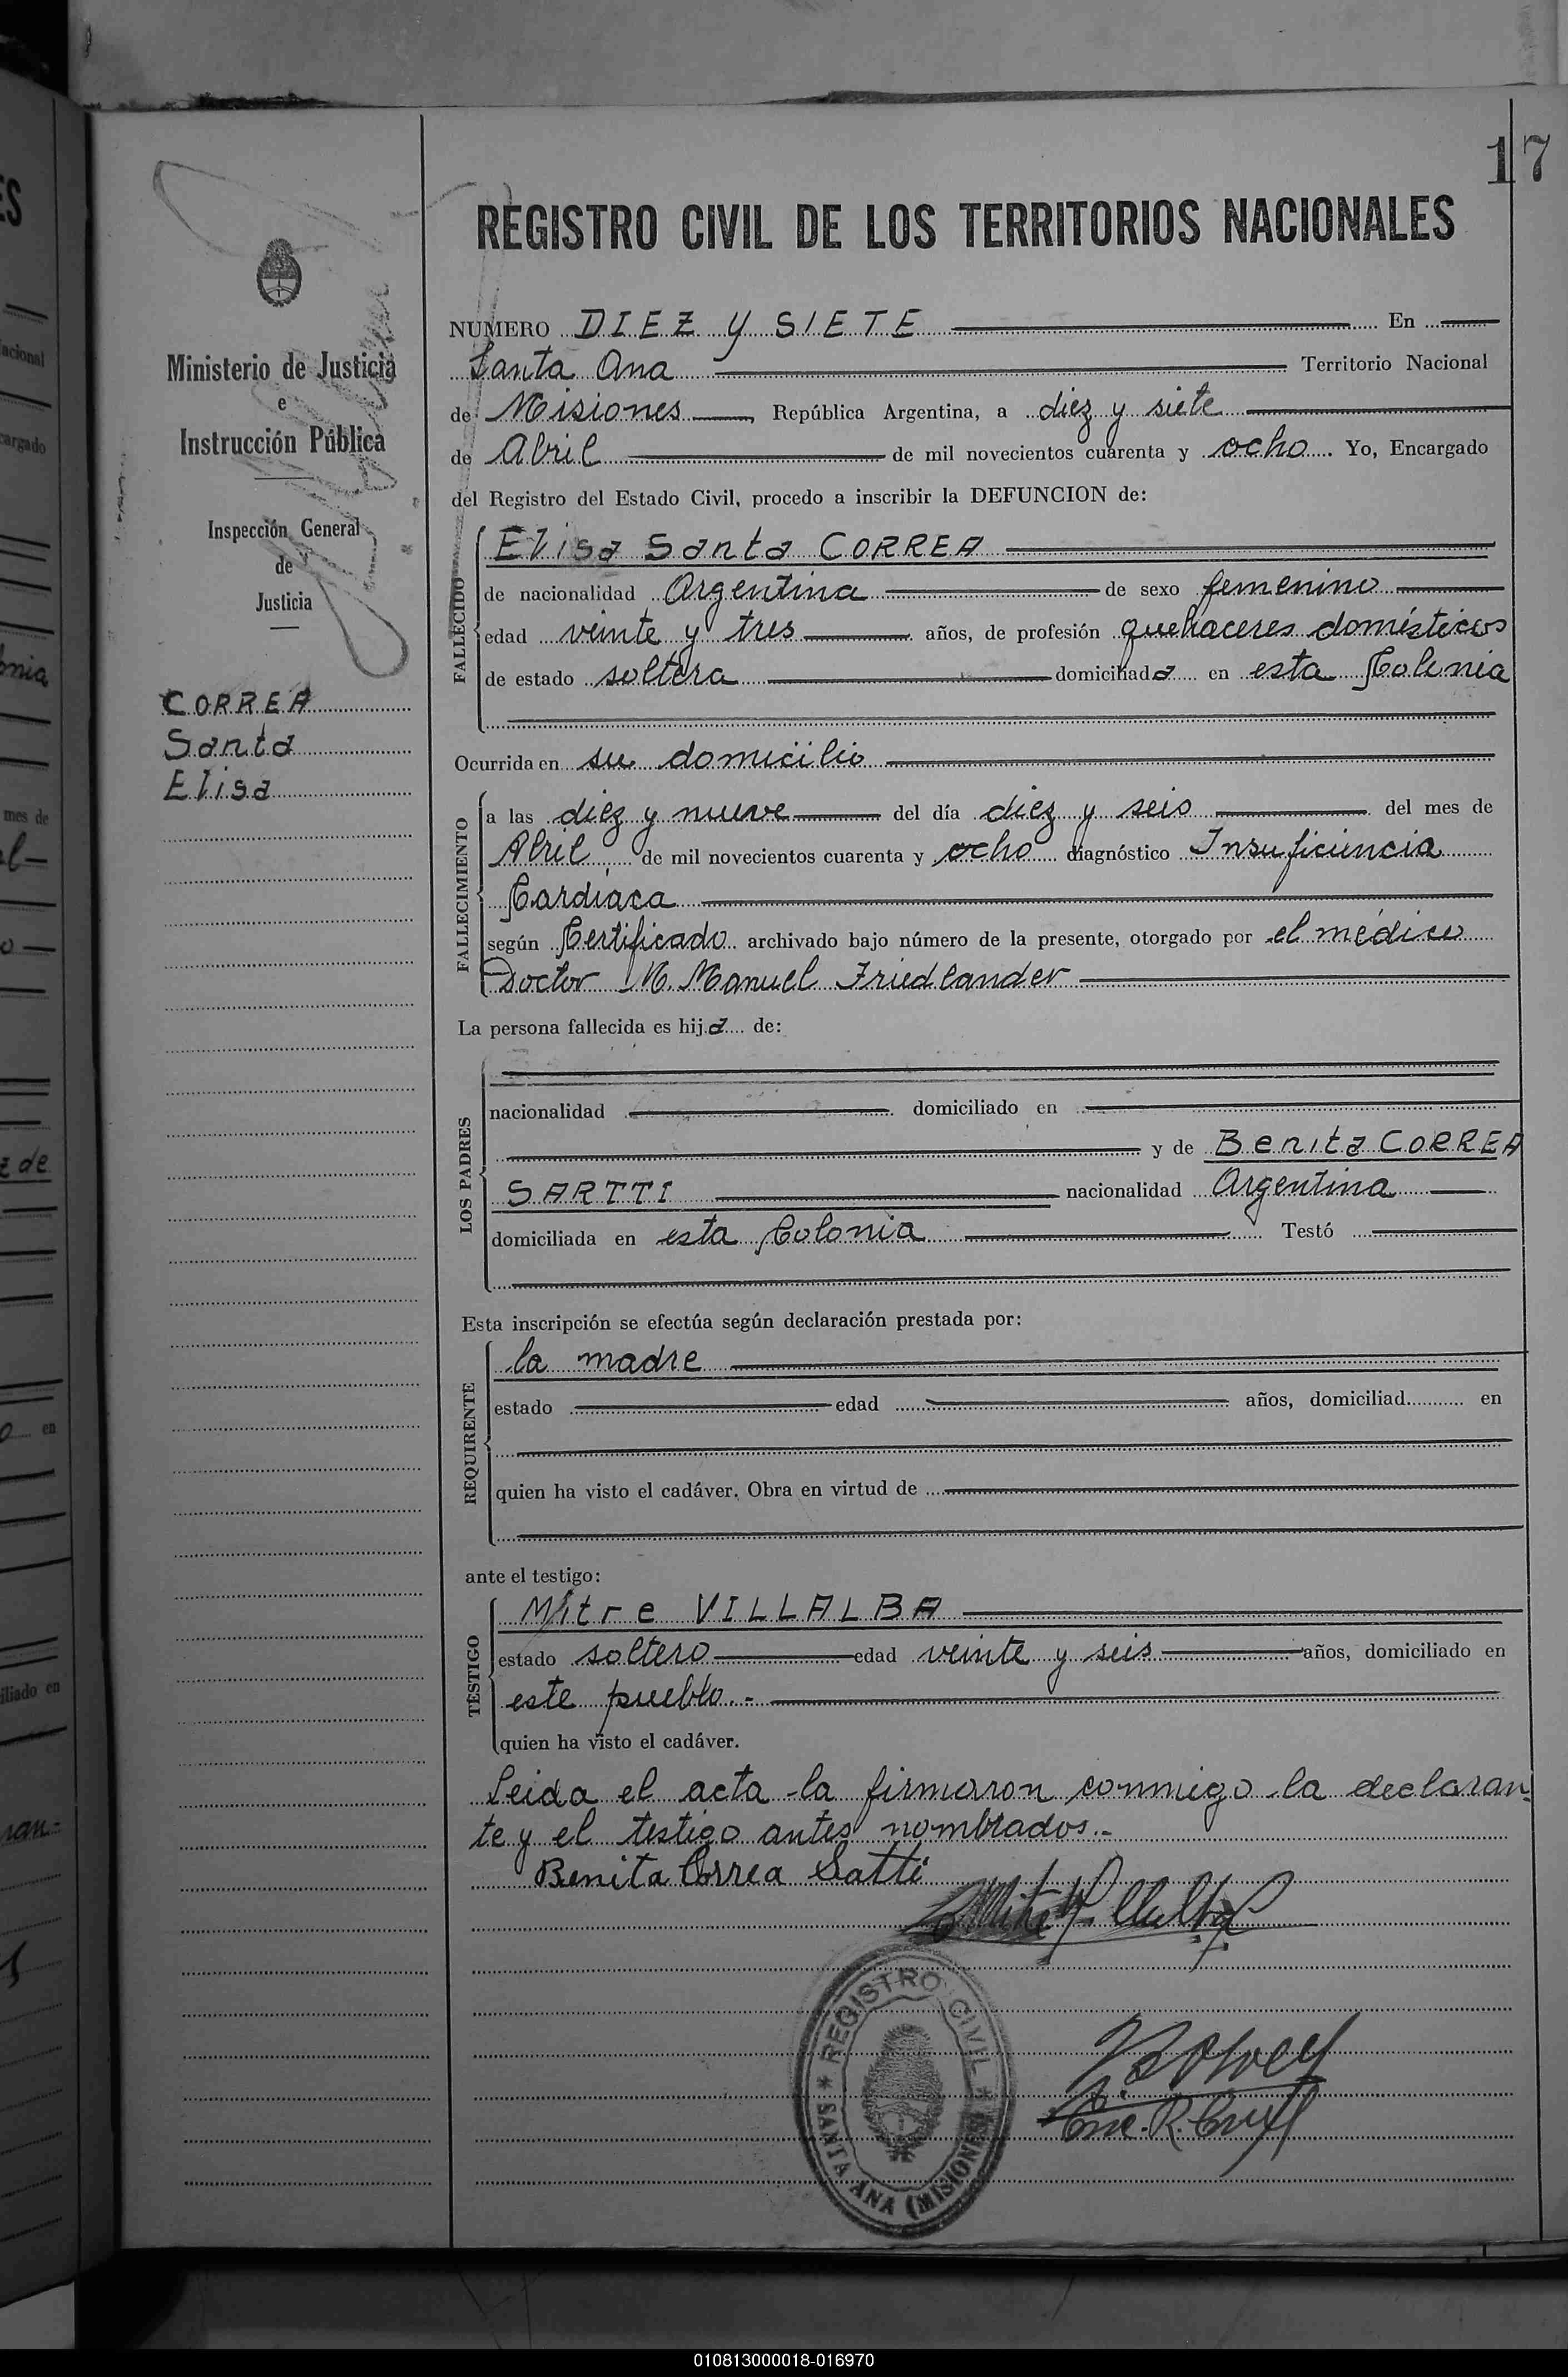 17
REGISTRO CIVIL DE LOS TERRITORIOS NACIONALES
Ministerio de Justicia
e
Instrucción Pública
Inspección General
de
Justicia
CORREA
Santa
Elisa
NUMERO DIEZ y SIETE En
Santa Ana Territorio Nacional
de Misiones, República Argentina, a diez y siete
de Abril de mil novecientos cuarenta y ocho. Yo, Encargado
del Registro del Estado Civil, procedo a inscribir la DEFUNCION de:
FALLECIDO
Elisa Santa CORREA
de nacionalidad Argentina de sexo femenino
edad veinte y tres años, de profesión quehaceres domésticos
de estado soltera domiciliada en esta Colonia
Ocurrida en su domicilio
FALLECIMIENTO
a las diez y nueve del día diez y seis del mes de
Abril de mil novecientos cuarenta y ocho diagnóstico Insuficiencia
Cardíaca
según Certificado archivado bajo número de la presente, otorgado por el médico
Doctor M. Manuel Friedlander
La persona fallecida es hija de:
LOS PADRES
nacionalidad domiciliado en
y de Benita CORREA
SARTTI nacionalidad Argentina
domiciliada en esta Colonia Testó
Esta inscripción se efectúa según declaración prestada por:
REQUIRENTE
la madre
estado edad años, domiciliad en
quien ha visto el cadáver. Obra en virtud de
ante el testigo:
TESTIGO
Mitre VILLALBA
estado soltero edad veinte y seis años, domiciliado en
este pueblo.-
quien ha visto el cadáver.
Leida el acta la firmaron conmigo la declaran-
te y el testigo antes nombrados.-
Benita Correa Satti
REGISTRO CIVIL
SANTA ANA (MISIONES)
Enc. R. Civil
010813000018-016970